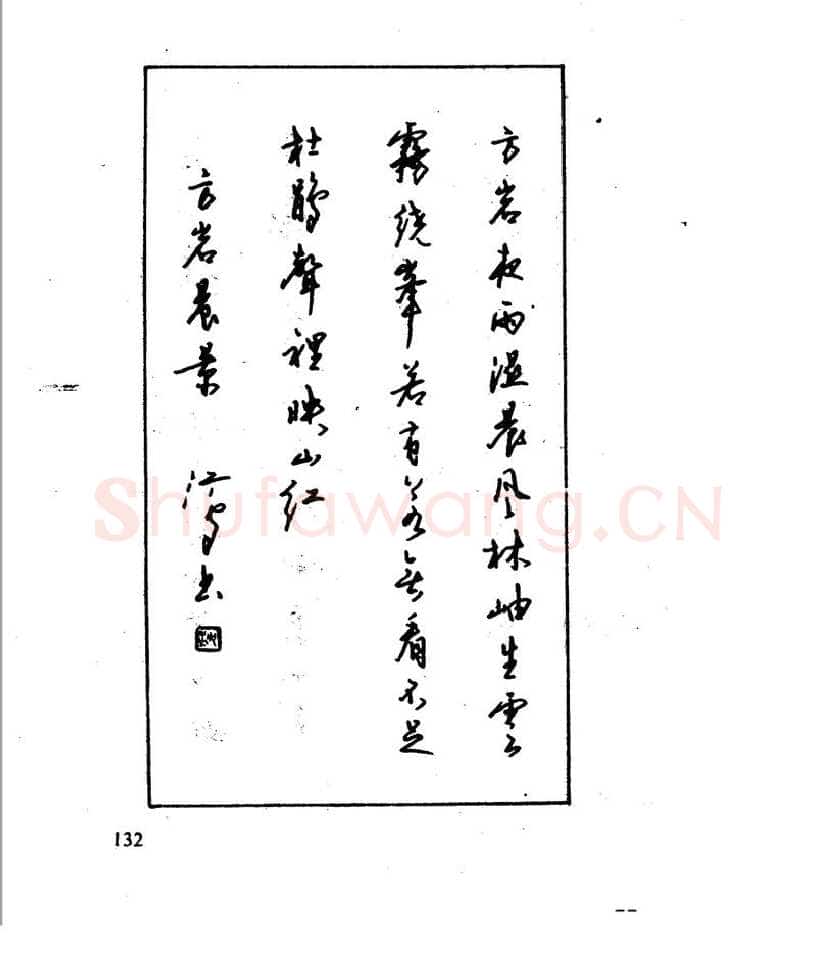 方岩夜雨湿晨风林岫生雲
霧绕峯若有若無看不足
杜鹃聲裡映山红
方岩晨景
书
Shufawang.CN
132